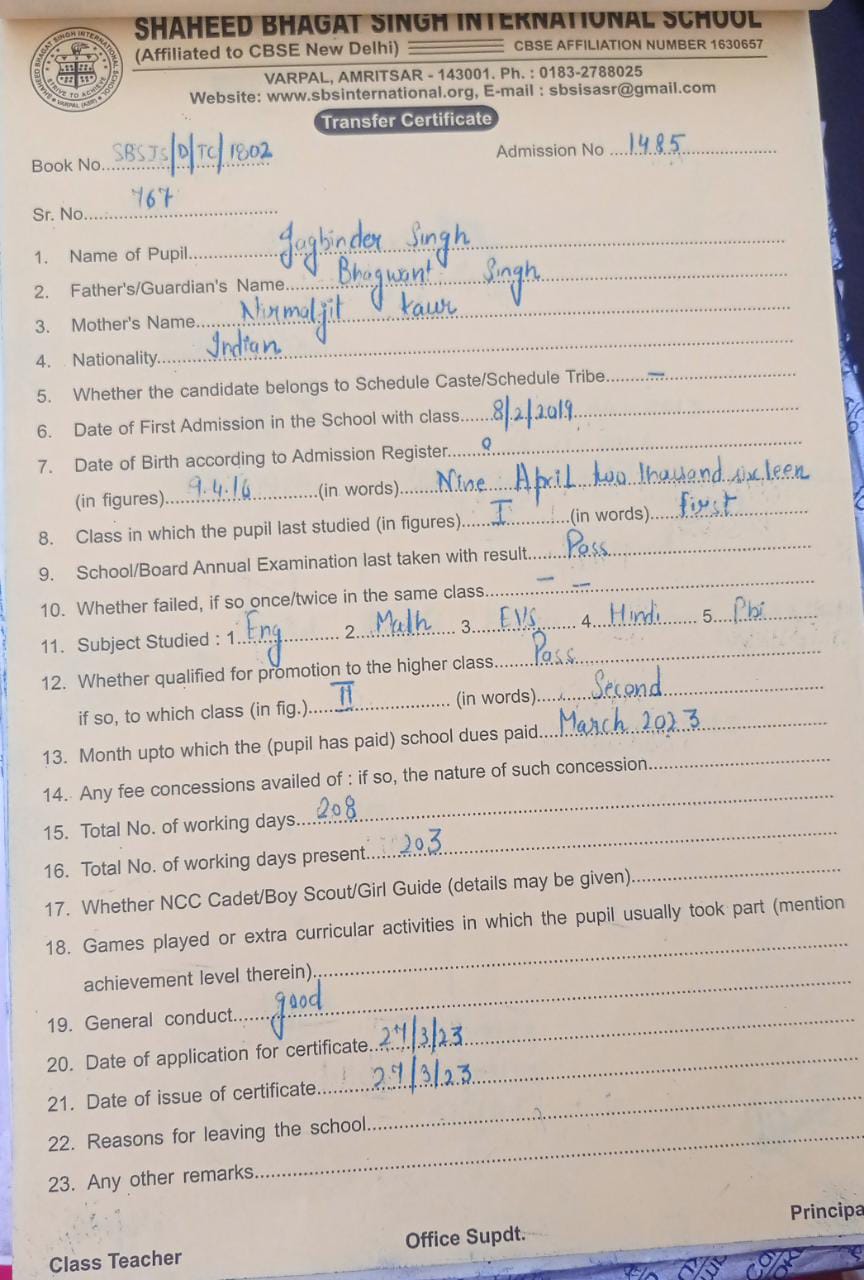 SHAHEED BHAGAT SINGH INTERNATIONAL SCHOOL
(Affiliated to CBSE New Delhi) CBSE AFFILIATION NUMBER 1630657
VARPAL, AMRITSAR - 143001. Ph. : 0183-2788025
Website: www.sbsinternational.org, E-mail : sbsisasr@gmail.com
Transfer Certificate
Book No. SBSIS/D/TC/1802 Admission No 1485
Sr. No. 767
1. Name of Pupil Jagbinder Singh
2. Father's/Guardian's Name Bhagwant Singh
3. Mother's Name Nirmaljit Kaur
4. Nationality Indian
5. Whether the candidate belongs to Schedule Caste/Schedule Tribe —
6. Date of First Admission in the School with class 8/2/2019
7. Date of Birth according to Admission Register
(in figures) 9.4.16 (in words) Nine April two thousand sixteen
8. Class in which the pupil last studied (in figures) I (in words) first
9. School/Board Annual Examination last taken with result Pass
10. Whether failed, if so once/twice in the same class — —
11. Subject Studied : 1. Eng 2. Math 3. EVS 4. Hindi 5. Pbi
12. Whether qualified for promotion to the higher class Pass
if so, to which class (in fig.) II (in words) Second
13. Month upto which the (pupil has paid) school dues paid March 2023
14. Any fee concessions availed of : if so, the nature of such concession
15. Total No. of working days 208
16. Total No. of working days present 203
17. Whether NCC Cadet/Boy Scout/Girl Guide (details may be given)
18. Games played or extra curricular activities in which the pupil usually took part (mention
achievement level therein)
19. General conduct good
20. Date of application for certificate 27/3/23
21. Date of issue of certificate 27/3/23
22. Reasons for leaving the school
23. Any other remarks
Class Teacher Office Supdt. Principa